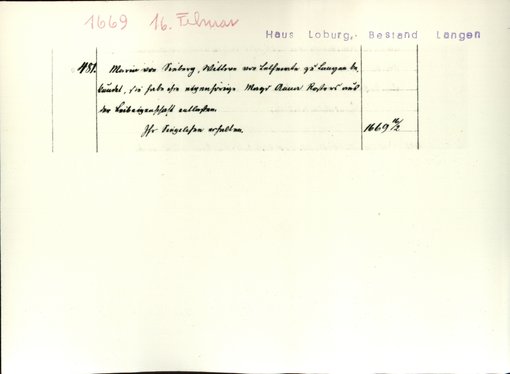 1669 16. Februar
Haus Loburg, Bestand Langen
481. Maria von Seiberg, Wittwe von zu Langen be
kundet, sie habe ihre eigenhörige Magd Anna aus
der Leibeigenschaft entlassen.
Ihr Siegel erhalten. 1669 16/2